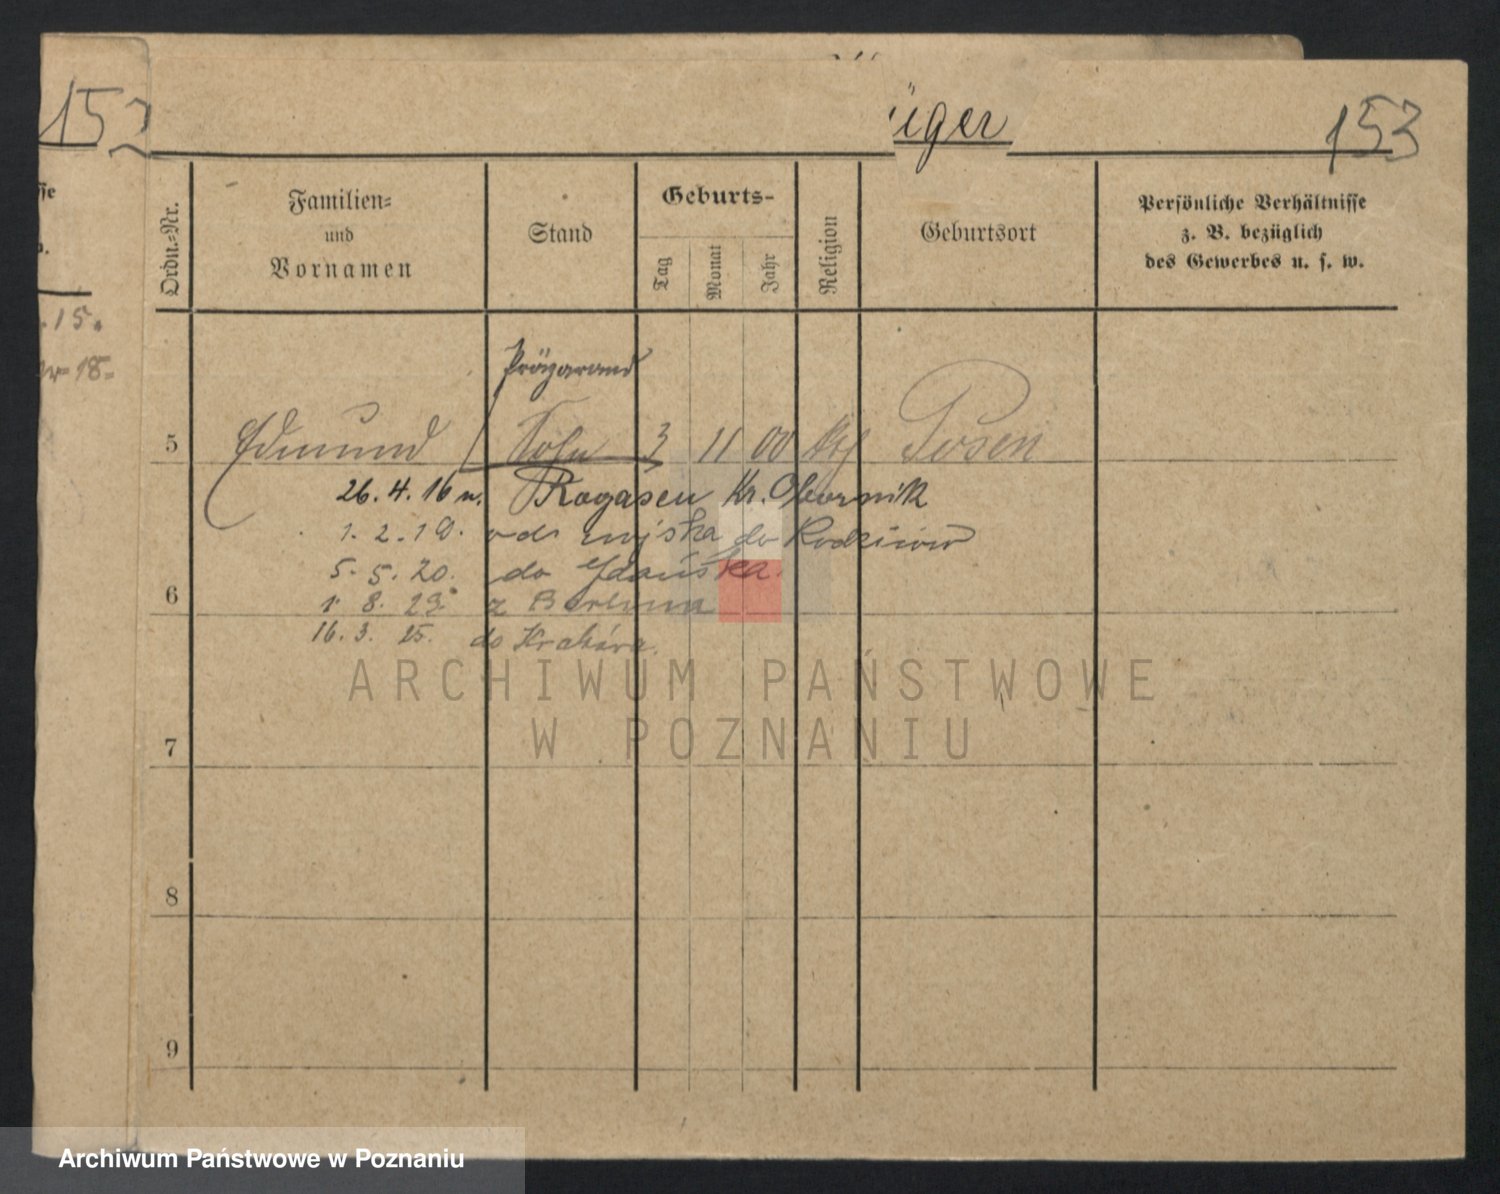 152
üger
153
Ordn.-Nr.
Familien-
und
Vornamen
Stand
Geburts-
Tag
Monat
Jahr
Religion
Geburtsort
Persönliche Verhältnisse
z. B. bezüglich
des Gewerbes u. s. w.
15.
18.
Präparand
5 Edmund Sohn 3 11 00 Posen
26. 4. 16 n. Rogasen Kr. Obornik
1. 2. 19. od wojska do Rodziców
5. 5. 20. do Gdańska.
6
1. 8. 23. z Berlina
16. 3. 25. do Krakowa.
ARCHIWUM PAŃSTWOWE
W POZNANIU
7
8
9
Archiwum Państwowe w Poznaniu